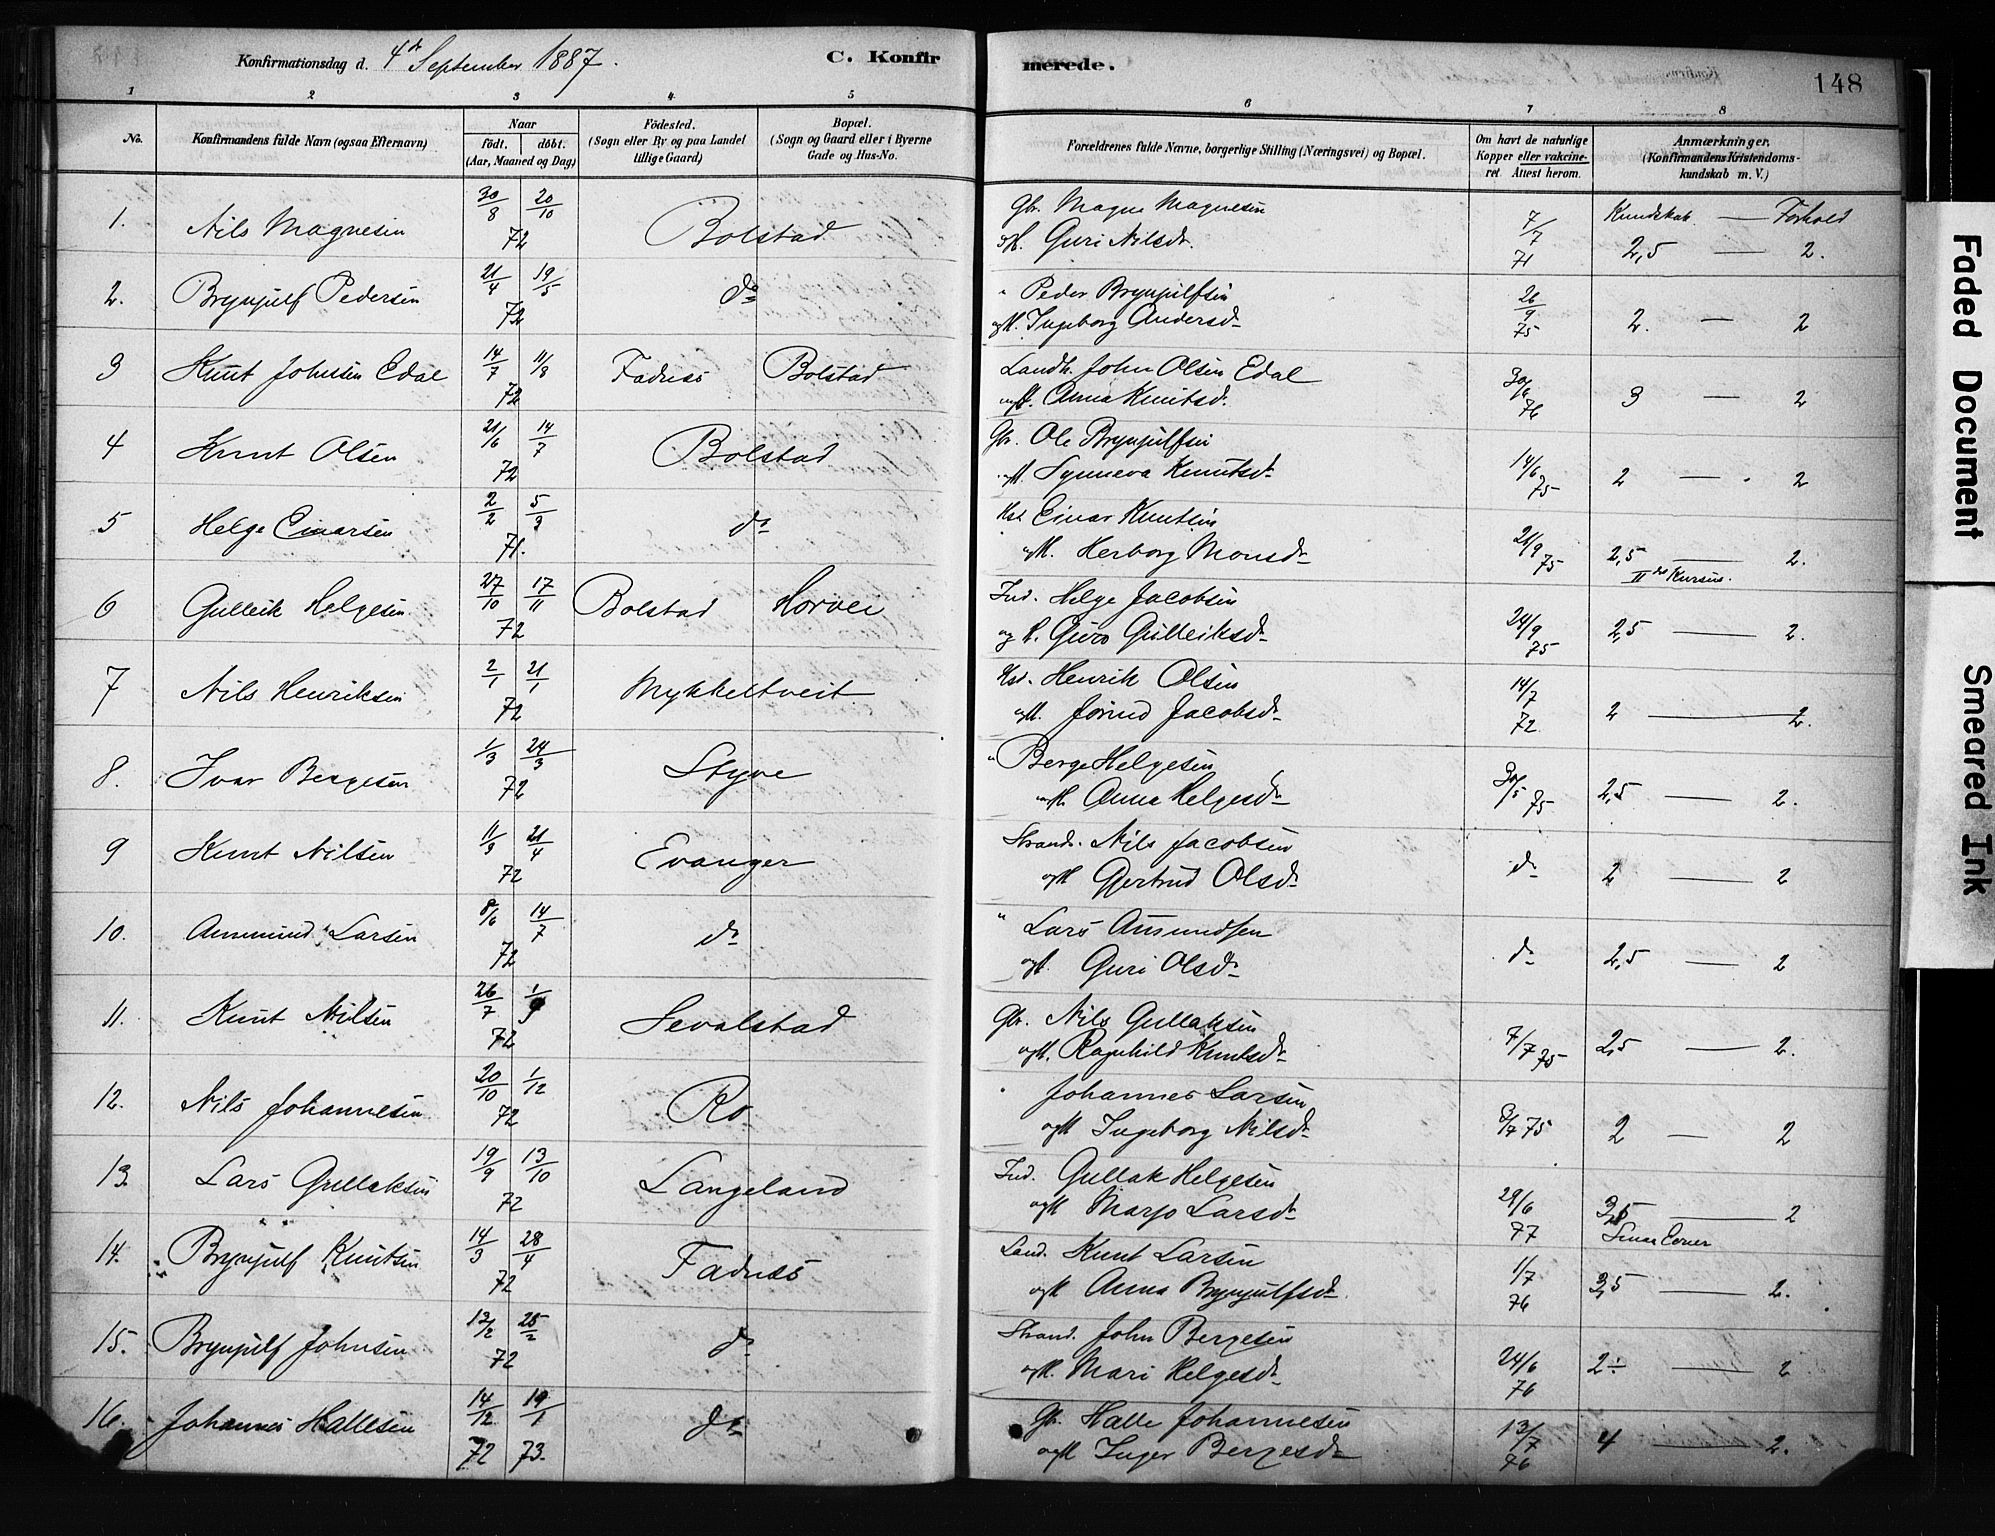 Konfirmationsdag d. 4de September 1887.
C. Konfir
merede.
148
1 2 3 4 5 6 7 8
No. Konfirmandens fulde Navn (ogsaa Efternavn) Naar født. døbt. (Aar, Maaned og Dag) Fødested. (Sogn eller By og paa Landet tillige Gaard) Bopæl. (Sogn og Gaard eller i Byerne Gade og Hus-No. Forældrenes fulde Navne, borgerlige Stilling (Næringsvei) og Bopæl. Om havt de naturlige Kopper eller vakcineret Attest herom. Anmærkninger. (Konfirmandens Kristendomskundskab m. V.)
Kundskab — Forhold
1. Nils Magnesen 30/8 20/10 72 Bolstad Gbr. Magne Magnesen og H. Guri Nilsdr 7/7 71 2,5 — 2.
2. Brynjulf Pedersen 21/4 19/5 72 do " Peder Brynjulfsen og H. Ingeborg Andersdr 26/9 75 2. — 2
3 Knut Johnsen Edal 14/7 11/8 72 Fadnes Bolstad Landh. John Olsen Edal og H. Anna Knutsd. 30/6 76 3 — 2
4 Knut Olsen 21/6 14/7 72 Bolstad Gbr. Ole Brynjulfsen og H. Synneva Knutsdr 14/6 75 2 — 2
5 Helge Einarsen 2/2 5/3 71. do Hsd Einar Knutsen og H. Herborg Monsdr 21/9 75 2,5 — 2.
II det Kursus.
6 Gulleik Helgesen 27/10 17/11 72 Bolstad Horvei Ind. Helge Jacobsen og H. Guro Gulleiksdr 24/9 75 2,5 — 2.
7 Nils Henriksen 2/1 21/1 72 Mykkeltveit Hsd. Henrik Olsen og H. Jorind Jacobsdr 14/7 72 2 — 2.
8. Ivar Bergesen 1/3 24/3 72 Styve " Berge Helgesen og H. Anna Helgesdr 30/5 75 2,5 — 2.
9 Knut Nilsen 11/3 21/4 72 Evanger Strands. Nils Jacobsen og H Gjertrud Olsdr do 2 — 2
10. Ammund Larsen 8/6 14/7 72 do " Lars Amundsen og H. Guri Olsdr do 2,5 — 2
11. Knut Nilsen 26/7 1/9 72 Sevalstad Gbr. Nils Gullaksen og H. Ragnhild Knutsdr 7/7 75 2,5 — 2.
12. Nils Johannesen 20/10 1/12 72 Ro " Johannes Larsen og H Ingeborg Nilsdr 8/7 75 2 — 2
13. Lars Gullaksen 19/9 13/10 72 Langeland Ind. Gullak Helgesen og H Marjo Larsdr 29/6 77 3,5 — 2
14. Brynjulf Knutsen 14/3 28/4 72 Fadnes Land. Knut Larsen og H Anna Brynjulfsdr 1/7 76 3,5 — 2.
15. Brynjulf Johnsen 12/2 25/2 72 do Strand. John Bergesen og H. Mari Helgesdr 24/6 76 2÷ — 2
16. Johannes Hallesen 14/12 72 19/1 73. do Gb. Halle Johannesen og H Inger Bergesdr 13/7 76 4 — 2.
Faded Document
Smeared Ink